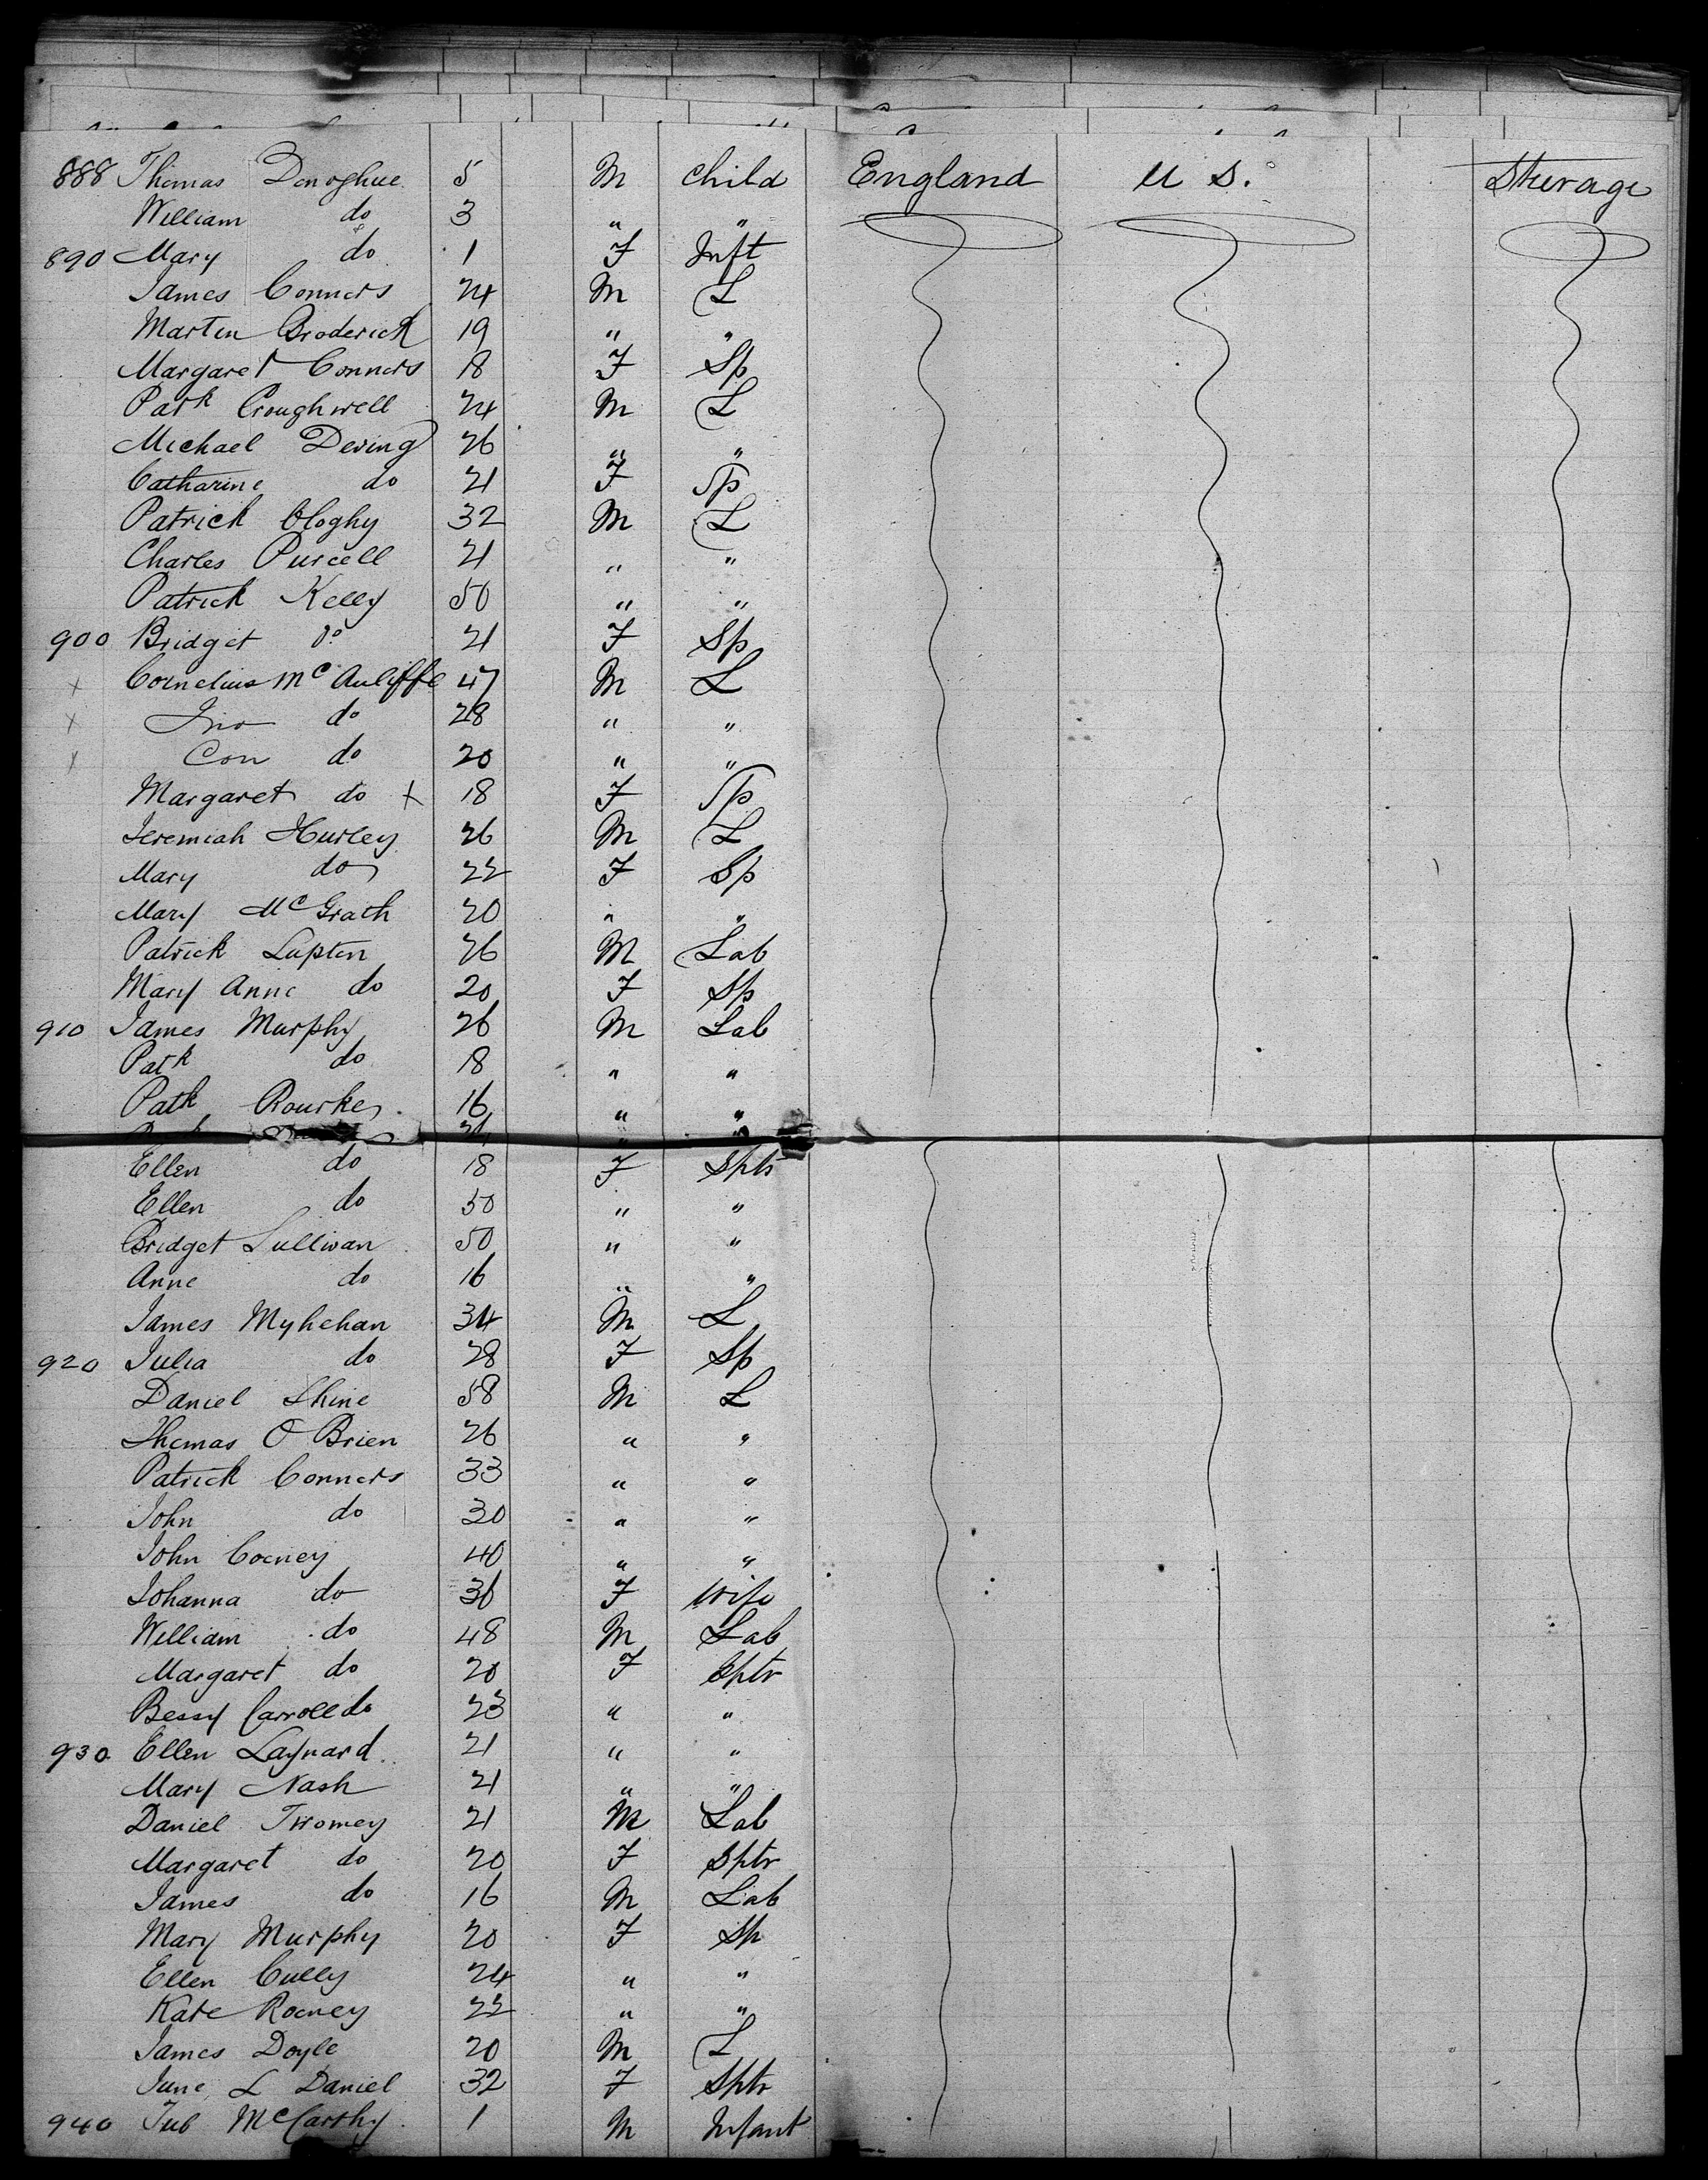 888 Thomas Donoghue 5 M child England U S. Steerage
William do 3 " "
890 Mary do 1 F Inft
James Connors 24 M L
Martin Broderick 19 " "
Margaret Connors 18 F Sp
Patk Croughwell 24 M L
Michael Dering 26 " "
Catharine do 21 F Sp
Patrick Cloghy 32 M L
Charles Purcell 21 " "
Patrick Kelly 50 " "
900 Bridget do 21 F Sp
x Cornelius McAuliffe 47 M L
x Jno do 28 " "
x Con do 20 " "
Margaret do x 18 F Sp
Jeremiah Hurley 26 M L
Mary do 22 F Sp
Mary McGrath 20 " "
Patrick Lupton 26 M Lab
Mary Anne do 20 F Sp
910 James Murphy 26 M Lab
Patk do 18 " "
Patk Rourke 16 " "
Ellen do 18 F Sptr
Ellen do 50 " "
Bridget Sullivan 50 " "
Anne do 16 " "
James Myhehan 34 M L
920 Julia do 28 F Sp
Daniel Shine 58 M L
Thomas O Brien 26 " "
Patrick Connors 33 " "
John do 30 " "
John Cooney 40 " "
Johanna do 36 F Wife
William do 48 M Lab
Margaret do 20 F Sptr
Bessy Carroll do 23 " "
930 Ellen Laynard 21 " "
Mary Nash 21 " "
Daniel Twomey 21 M Lab
Margaret do 20 F Sptr
James do 16 M Lab
Mary Murphy 20 F Sp
Ellen Cully 24 " "
Kate Rooney 22 " "
James Doyle 20 M L
June L Daniel 32 F Sptr
940 Jub McCarthy 1 M Infant